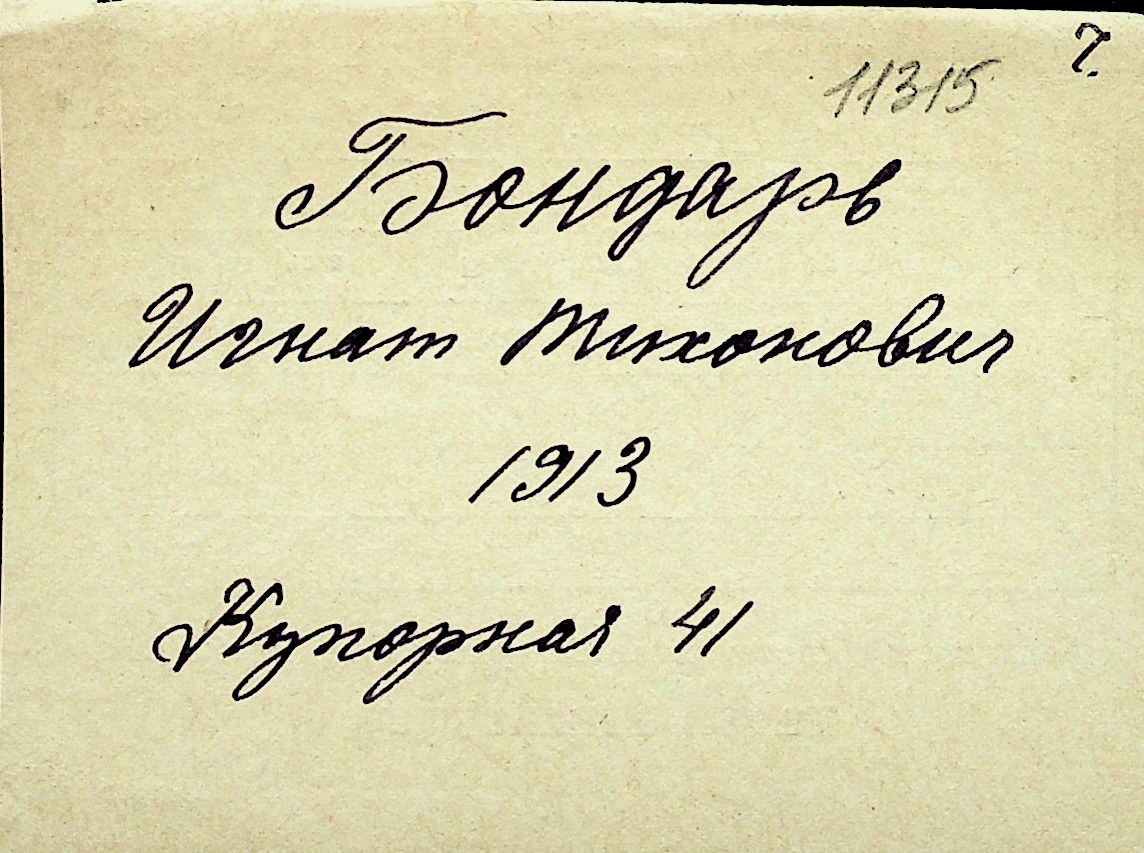 11315
Бондарь
Игнат Тихонович
1913
Купорная 41